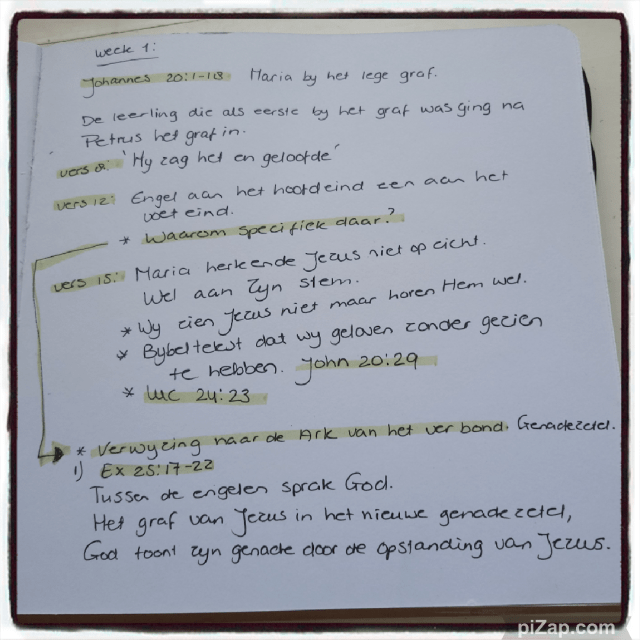 week 1:
Johannes 20:1-18 Maria by het lege graf.
De leerling die als eerste by het graf was ging na
Petrus het graf in.
vers 8: 'Hy zag het en geloofde'
vers 12: Engel aan het hoofdeind een aan het
voeteind.
* Waarom specifiek daar?
vers 15: Maria herkende Jezus niet op zicht.
Wel aan Zyn stem.
* Wy zien Jezus niet maar horen Hem wel.
* Bybeltekst dat wy geloven zonder gezien
te hebben. John 20:29
* Luc 24:23
* Verwyzing naar de Ark van het verbond. Genadezetel.
1) Ex 25:17-22
Tussen de engelen sprak God.
Het graf van Jezus in het nieuwe genadezetel,
God toont zyn genade door de opstanding van Jezus.
piZap.com